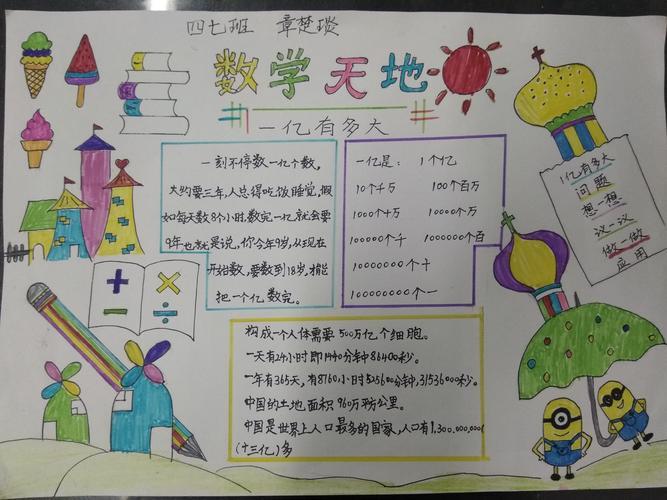 四七班 章楚琰
数学天地
一亿有多大
一刻不停数一亿个数,
大约要三年,人总得吃饭睡觉,假
如每天数8个小时,数完一亿就会要
9年也就是说,你今年9岁,从现在
开始数,要数到18岁,才能
把一个亿数完。
一亿是: 1个亿
10个千万 100个百万
1000个十万 10000个万
100000个千 1000000个百
10000000个十
100000000个一
1亿有多大
问题
想一想
议一议
做一做
应用
+ ×
- ÷
构成一个人体需要500万亿个细胞。
一天有24小时即1440分钟86400秒。
一年有365天,有8760小时525600分钟,3153600秒。
中国的土地面积960万平方公里。
中国是世界上人口最多的国家,人口有1,300,000,000
(十三亿)多